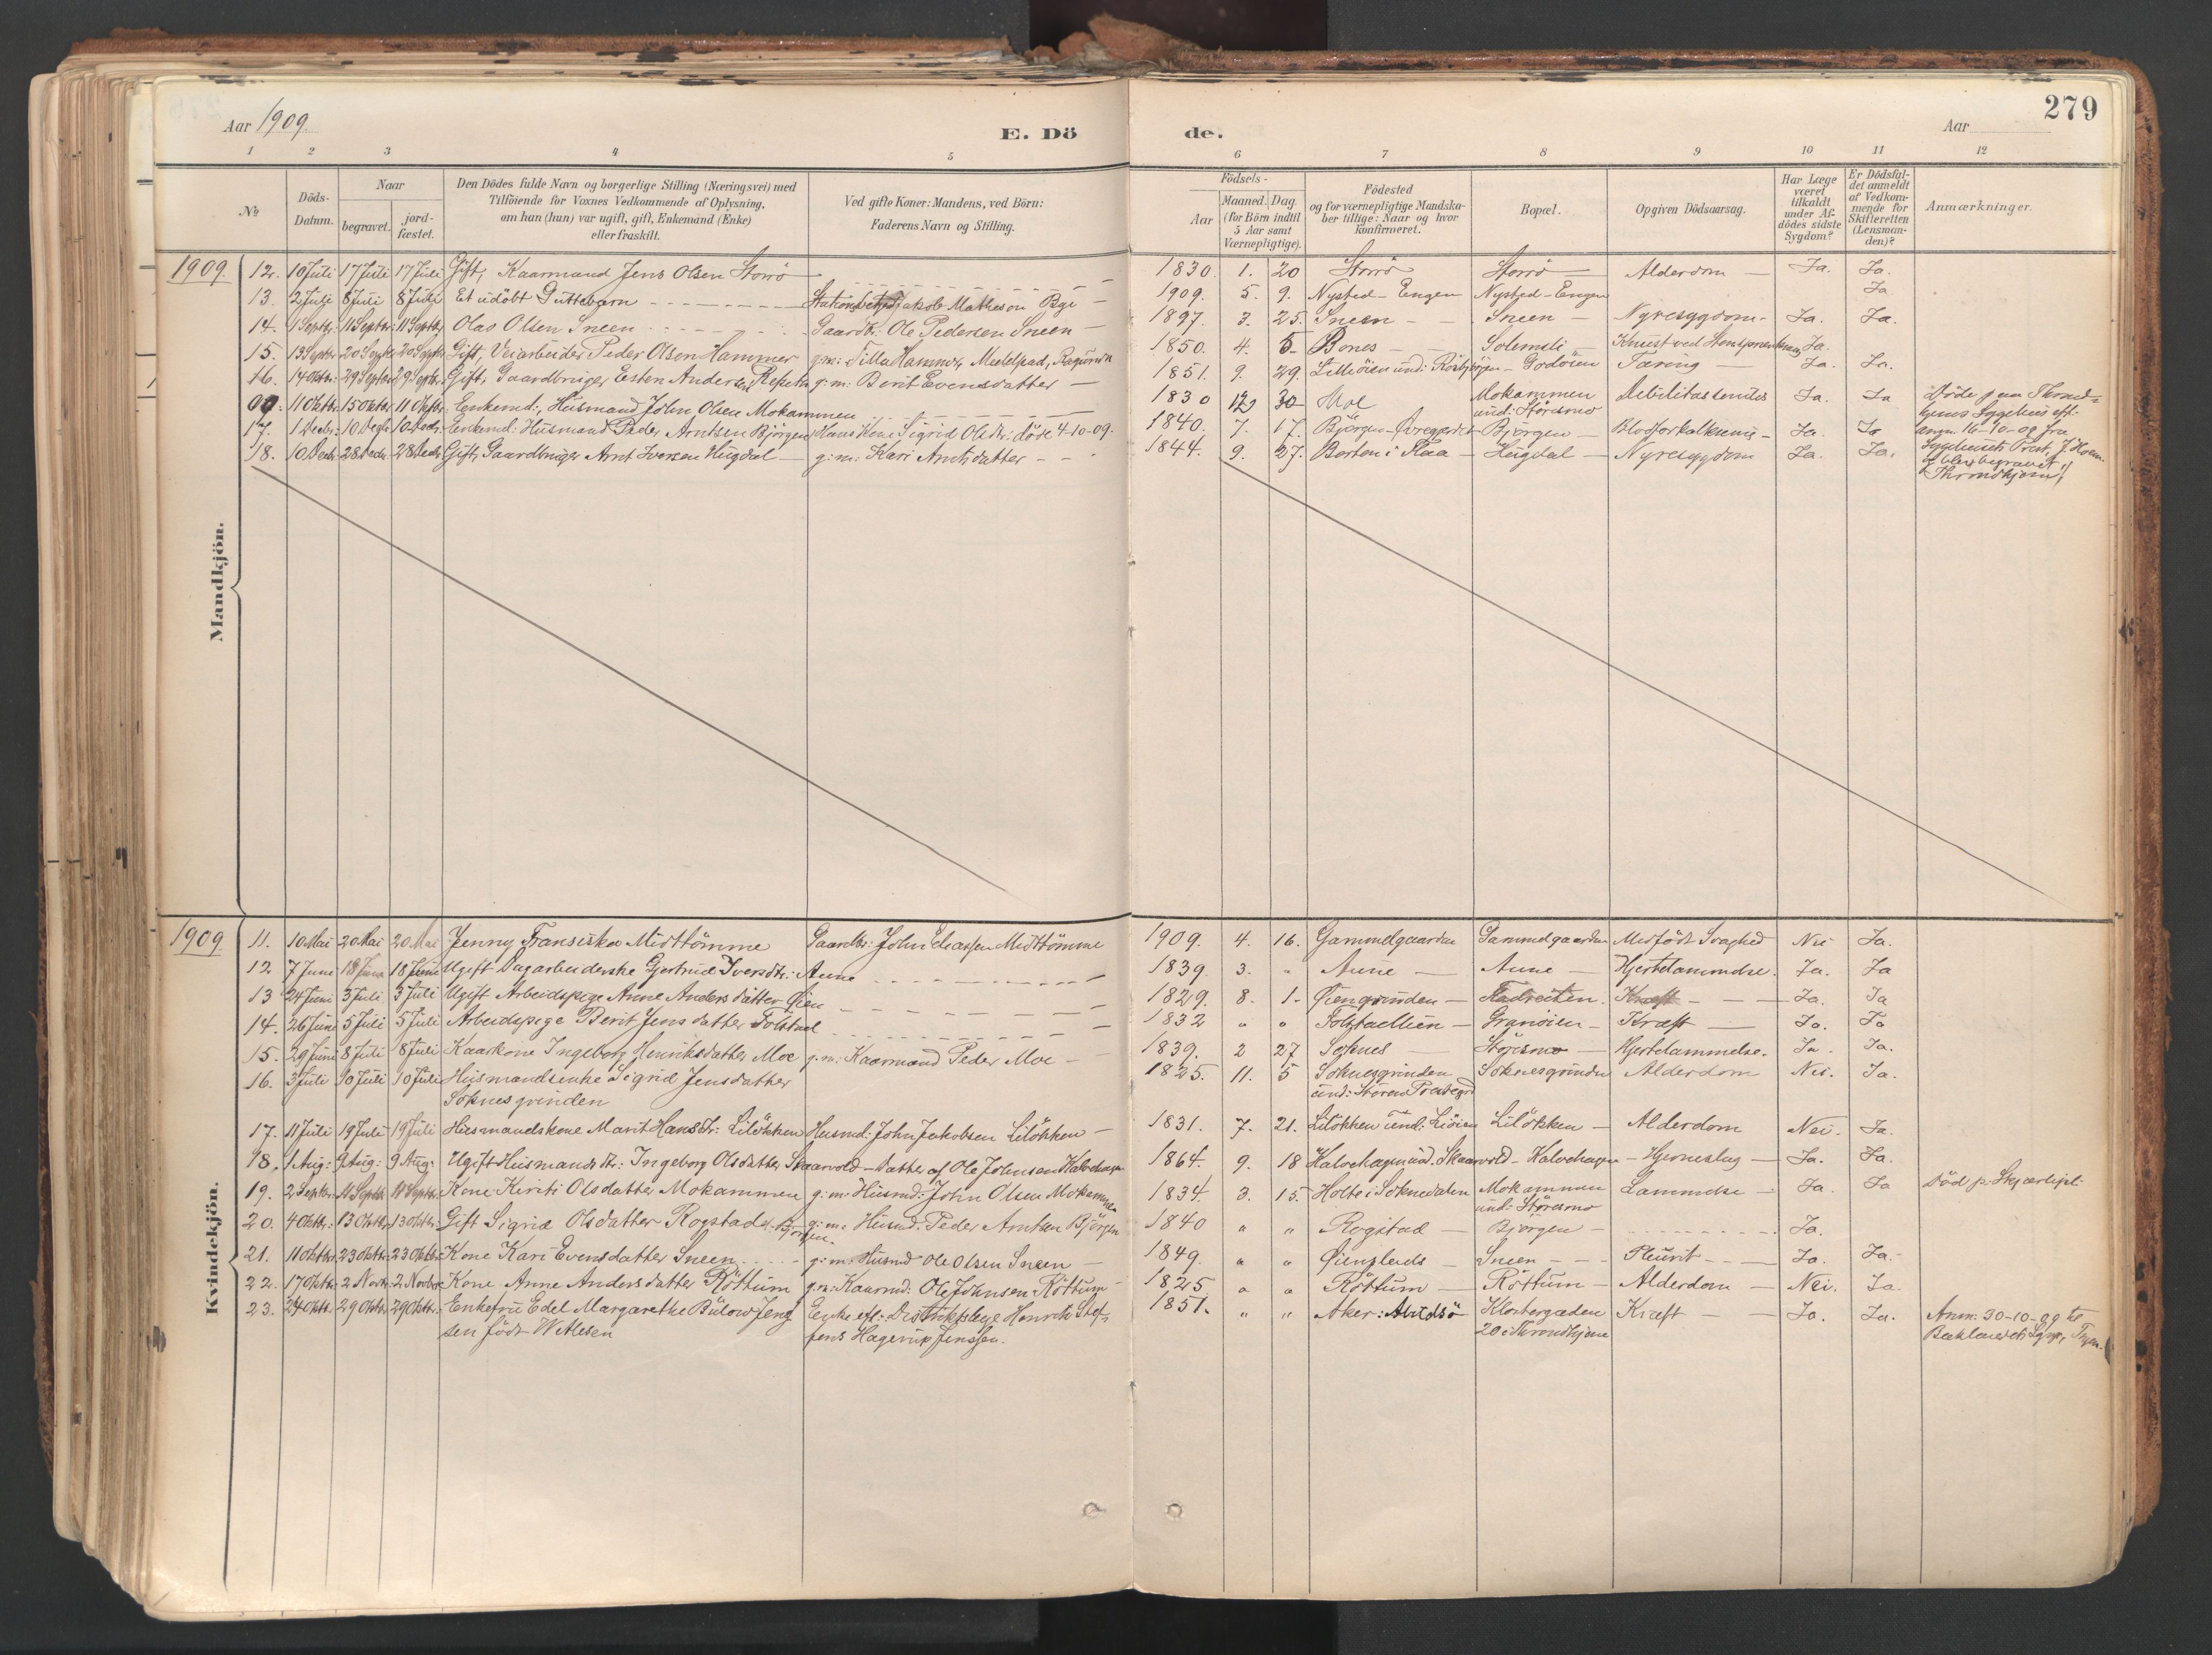 Aar 1909.
E. Dö
de.
Aar
279
1 2 3 4 5 6 7 8 9 10 11 12
№
Döds-Datum.
Naar
begravet.
jord-fæstet.
Den Dödes fulde Navn og borgerlige Stilling (Næringsvei) med
Tilföiende for Voxnes Vedkommende af Oplysning,
om han (hun) var ugift, gift, Enkemand (Enke)
eller fraskilt.
Ved gifte Koner: Mandens, ved Börn:
Faderens Navn og Stilling.
Födsels-
Aar
Maaned. Dag
(for Börn indtil
5 Aar samt
Værnepligtige).
Födested
og for værnepligtige Mandska-
ber tillige: Naar og hvor
konfirmeret.
Bopæl.
Opgiven Dödsaarsag.
Har Læge
været
tilkaldt
under Af-
dödes sidste
Sygdom?
Er Dödsfal-
det anmeldt
af Vedkom-
mende for
Skifteretten
(Lensman-
den)?
Anmærkninger.
Mandkjön.
1909. 12. 10 Juli 17 Juli 17 Juli Gift, Kaarmand Jens Olsen Storrö 1830. 1. 20 Storrö Storrö Alderdom Ja. Ja.
13. 2 Juli 8 Juli 8 Juli Et udöbt Guttebarn Jakob Mathesen Bye 1909. 5. 9. Nysted-Engen Nysted-Engen Ja
14. 1 Septbr: 11 Septbr: 11 Septbr: Olao Olsen Sneen Gaardbr. Ole Pedersen Sneen 1897. 3. 25. Sneen Sneen Nyresygdom. Ja. Ja.
15. 13 Septbr: 20 Septbr 20 Septbr Gift, Veiarbeider Peder Olsen Hammer g.m: Hammer, 1850. 4. 5 Bones Solemsli Knust ved Ja.
16. 14 29 Septbr 29 Septbr: Gift, Gaardbruger Esten Andersen g.m: Berit Evensdatter 1851. 9. 29. und: Godöien Tæring Ja. Ja.
11 Oktbr: 15 Oktbr 11 Oktbr: Enkemd:, Husmand John Olsen Mokammen 1830 12 30 Moe Mokammen
und: Störesmo Debilitas senilis Ja. Ja Döde paa Thrond-
hjems Sygehus eft:
anm. 16-10-09 fra
Sygehusets Prest, J. Hoem
blev begravet i
Throndhjem.
17. 1 Decbr: 10 Decbr 10 Decbr: Enkemd: Husmand Peder Arntsen Björgen Hans Kone Sigrid Olsdtr: döde 4-10-09. 1840. 7. 17. Björgen Björgen Blodforkalkning Ja. Ja
18. 10 Decbr 28 Decbr. 28 Decbr Gift, Gaardbruger Arnt Iversen Hugdal g:m: Kari Arntsdatter 1844. 9. 27. Borten i Flaa Hugdal Nyresygdom Ja. Ja.
Kvindekjön.
1909 11. 10 Mai 20 Mai 20 Mai Jenny Fransiska Midttömme Gaardbr: John Midttömme 1909. 4. 16. Gammelgaarden Gammelgaarden Medfödt Svaghed Nei Ja.
12 7 Juni 18 Juni 18 Juni Ugift Dagarbeiderske Gjertrud Iversdtr: Aune 1839. 3. " Aune Aune Hjertelammelse. Ja. Ja
13 24 Juni 3 Juli 3 Juli Ugift Arbeidspige Anne Andersdatter Öien 1829. 8. 1. Öiengrinden Kræft Ja. Ja
14. 26 Juni 5 Juli 5 Juli Arbeidspige Berit Jensdatter Folstad 1832 " " Folstadlien Granöien Kræft Ja. Ja
15. 29 Juni 8 Juli 8 Juli Kaarkone Ingeborg Henriksdatter Moe g.m: Kaarmand Peder Moe 1839. 2 27 Soknes Störesmo Hjertelammelse. Ja. Ja.
16. 3 Juli 10 Juli 10 Juli Husmandsenke Sigrid Jensdatter
Soknesgrinden 1825. 11. 5 Soknesgrinden
und: Störens Prestegrd Soknesgrinden Alderdom Nei. Ja.
17. 11 Juli 19 Juli 19 Juli Husmandskone Marit Hansdtr: Lilökken Husmd: John Jakobsen Lilökken 1831. 7. 21. Lilökken und: Liöien Lilökken Alderdom Nei. Ja.
18. 1 Aug: 9 Aug: 9 Aug: Ugift Husmandsdtr: Ingeborg Olsdatter Skaarvold datter af Ole Johnsen Kalvehagen 1864. 9. 18 Kalvehagen und. Skaarvold Kalvehagen Hjerneslag Ja. Ja.
19. 2 Septbr: 11 Septbr 11 Septbr: Kone Kirsti Olsdatter Mokammen g:m: Husmd: John Olsen Mokammen 1834. 3. 15. Holte i Soknedalen Mokammen
und: Störesmo Lammelse Ja. Ja Död p. Skjærlspl.
20. 4 Oktbr: 13 Oktbr 13 Oktbr: Gift Sigrid Olsdatter Rogstad Björgen. g:m: Husmd: Peder Arntsen Björgen 1840 " " Rogstad Björgen Ja.
21. 11 Oktbr 23 Oktbr. 23 Oktbr Kone Kari Evensdatter Sneen g:m: Husmd Ole Olsen Sneen 1849. " " Öienplads Sneen Pleurit Ja. Ja.
22. 17 Oktbr: 2 Novbr. 2 Novbr Kone Anne Andersdatter Röttum g.m: Kaarmd: Ole Johnsen Röttum 1825 " " Röttum Röttum Alderdom Nei. Ja.
23. 24 Oktbr. 29 Oktbr. 29 Oktbr. Enkefru Edel Margarethe Bülow Jens
sen födt Witlesen Enke eft: Distriktslæge Henrik Stef
fens Hagerup Jenssen. 1851. " " Aker: Klostergaden
20 i Throndhjem Kræft Ja. Ja. Anm: 30-10-09 til